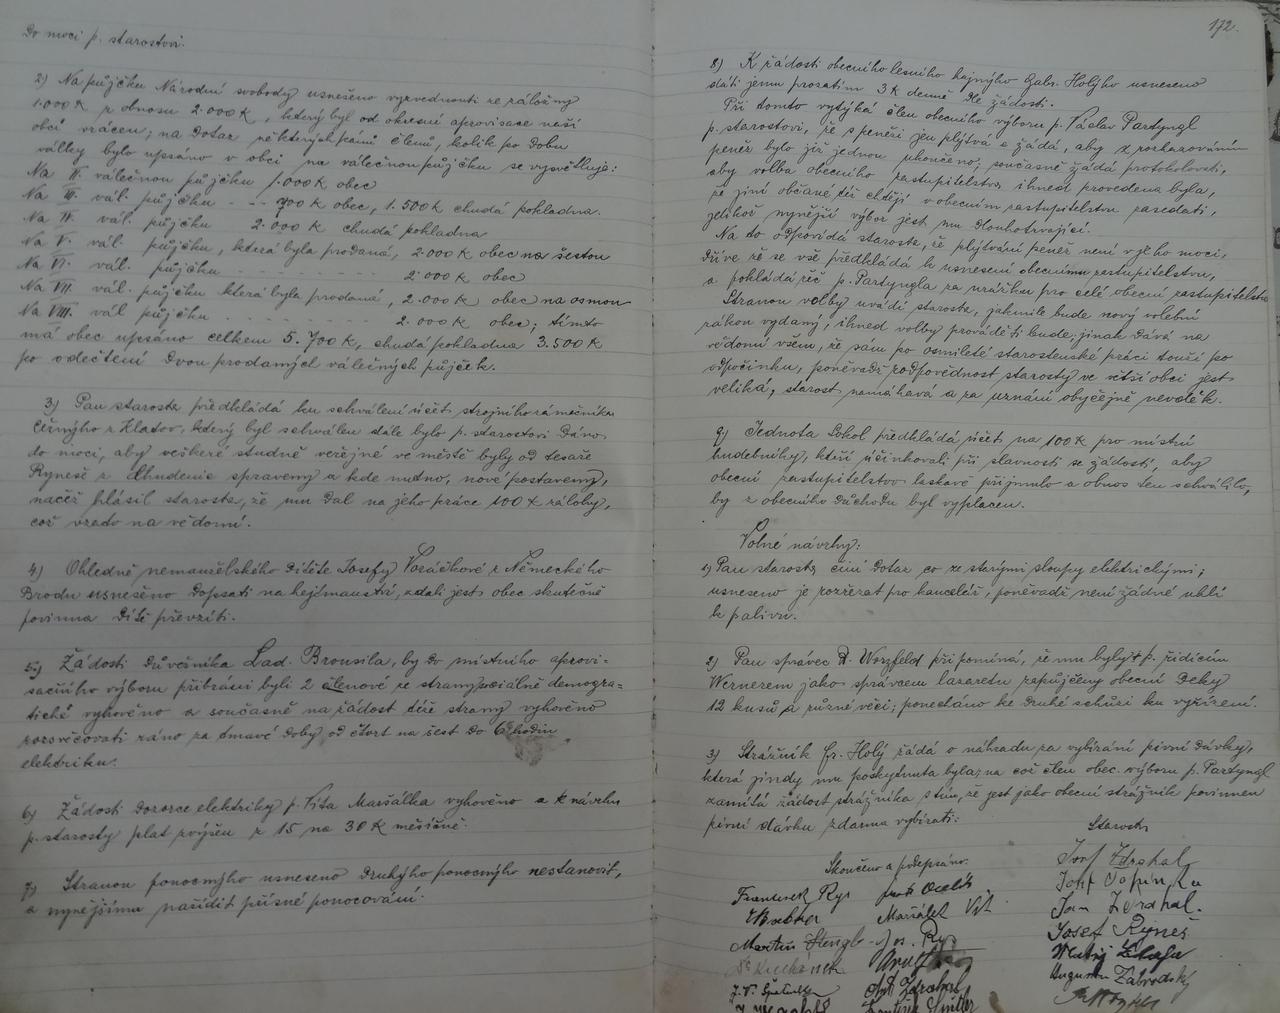 Do moci p. starostovi.
2) Na půjčku Národní svobody usneseno vyzvednouti ze záložny
1.000 K z obnosu 2.000 K, který byl od okresní aprovisace naší
obci vrácen; na dotaz některých pánů členů, kolik po dobu
války bylo upsáno v obci na válečnou půjčku se vysvětluje:
Na II. válečnou půjčku 1.000 K obec
Na III. vál. půjčku - - 700 K obec, 1.500 K chudá pokladna.
Na IV. vál. půjčku 2.000 K chudá pokladna
Na V. vál. půjčku, která byla prodaná, 2.000 K obec na šestou
Na VI. vál. půjčku - - - - - - - 2.000 K obec
Na VII. vál. půjčku která byla prodaná, 2.000 K obec na osmou
Na VIII. vál půjčku - - - - - - - 2.000 K obec; tímto
má obec upsáno celkem 5.700 K, chudá pokladna 3.500 K
po odečtení dvou prodaných válečných půjček.
3) Pan starosta předkládá ku schválení účet strojního zámečníka
Černýho z Klatov, který byl schválen dále bylo p. starostovi dáno
do moci, aby veškeré studně veřejné ve městě byly od tesaře
Ryneše z Chudenic spraveny a kde nutno, nové postaveny,
načež hlásil starosta, že mu dal na jeho práce 100 K zálohy,
což vzato na vědomí.
4) Ohledně nemanželského dítěte Josefy Voráčkové z Německého
Brodu usneseno dopsati na hejtmanství, zdali jest obec skutečně
povinna dítě převzíti.
5) Žádosti důvěrníka Lad. Brousila, by do místního aprovi-
sačního výboru přibráni byli 2 členové ze strany sociálně demogra-
tické vyhověno a současně na žádost též strany vyhověno
rozsvěcovati ráno za tmavé doby od čtvrt na šest do 6 hodin
elektriku.
6) Žádosti dozorce elektriky p. Víta Maršálka vyhověno a k návrhu
p. starosty plat zvýšen z 15 na 30 K měsíčně.
7) Stranou ponocnýho usneseno druhýho ponocnýho nestanovit,
a nynějšímu nařídit přísné ponocování.
172.
8) K žádosti obecního lesního hajnýho Gabr. Holýho usneseno
dáti jemu prozatím 3 K denně dle žádosti.
Při tomto vytýká člen obecního výboru p. Václav Partyngl
p. starostovi, že s penězi jen plýtvá a žádá, aby z rozhazováním
peněz bylo již jednou ukončeno, současně žádá protokolovati,
aby volba obecního zastupitelstva ihned provedena byla,
že jiní občané též chtějí v obecním zastupitelstvu zasedati,
jelikož nynější výbor jest mu dlouhotrvající.
Na to odpovídá starosta, že plýtvání peněz není v jeho moci,
dříve že se vše předkládá k usnesení obecnímu zastupitelstvu,
a pokládá řeč p. Partyngla za urážku pro celé obecní zastupitelstvo
Stranou volby uvádí starosta, jakmile bude nový volební
zákon vydaný, ihned volby prováděti bude; jinak dává na
vědomí všem, že sám po osmileté starostenské práci touží po
odpočinku, poněvadž zodpovědnost starosty ve větší obci jest
veliká, starost namáhavá a za uznání obyčejně nevděk.
9) Jednota Sokol předkládá účet na 100 K pro místní
hudebníky, kteří účinkovali při slavnosti se žádostí, aby
obecní zastupitelstvo laskavě přijmulo a obnos ten schválilo,
by z obecního důchodu byl vyplacen.
Volné návrhy:
1) Pan starosta činí dotaz co ze starými sloupy elektrickými;
usneseno je rozřezat pro kanceláři, poněvadž není žádné uhlí
k palivu.
2) Pan správec R. Worzfeld připomíná, že mu byly p. řídícím
Wernerem jako správcem lazaretu zapůjčeny obecní deky
12 kusů a různé věci; ponecháno ke druhé schůzi ku vyřízení.
3) Strážník fr. Holý žádá o náhradu za vybírání pivní dávky,
která jindy mu poskytnuta byla; na což člen obec. výboru p. Partyngl
zamítá žádost strážníka s tím, že jest jako obecní strážník povinnen
pivní dávku zdarma vybírati:
Skončeno a podepsáno. Starosta
Josef Zdrahal
Frantisek Rys
Maršálek Vít Jan Zdrahal.
Martin Stengl Jos. Rys Josef Ryneš
Ant Zdrahal Augustin Zábrodský